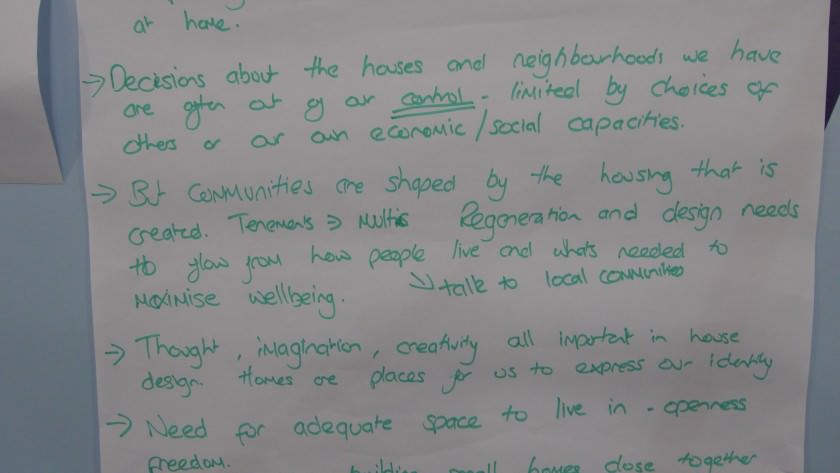 at home.
→ Decisions about the houses and neighbourhoods we have
are often out of our control - limited by choices of
others or our own economic / social capacities.
→ But communities are shaped by the housing that is
created. Tenements → Multis Regeneration and design needs
to flow from how people live and whats needed to
maximise wellbeing. ↘ talk to local communities
→ Thought, imagination, creativity all important in house
design. Homes are places for us to express our identity
→ Need for adequate space to live in - openness
freedom. building small homes close together